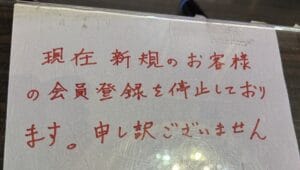 現在 新規のお客様
の会員登録を停止しており
ます。申し訳ございません